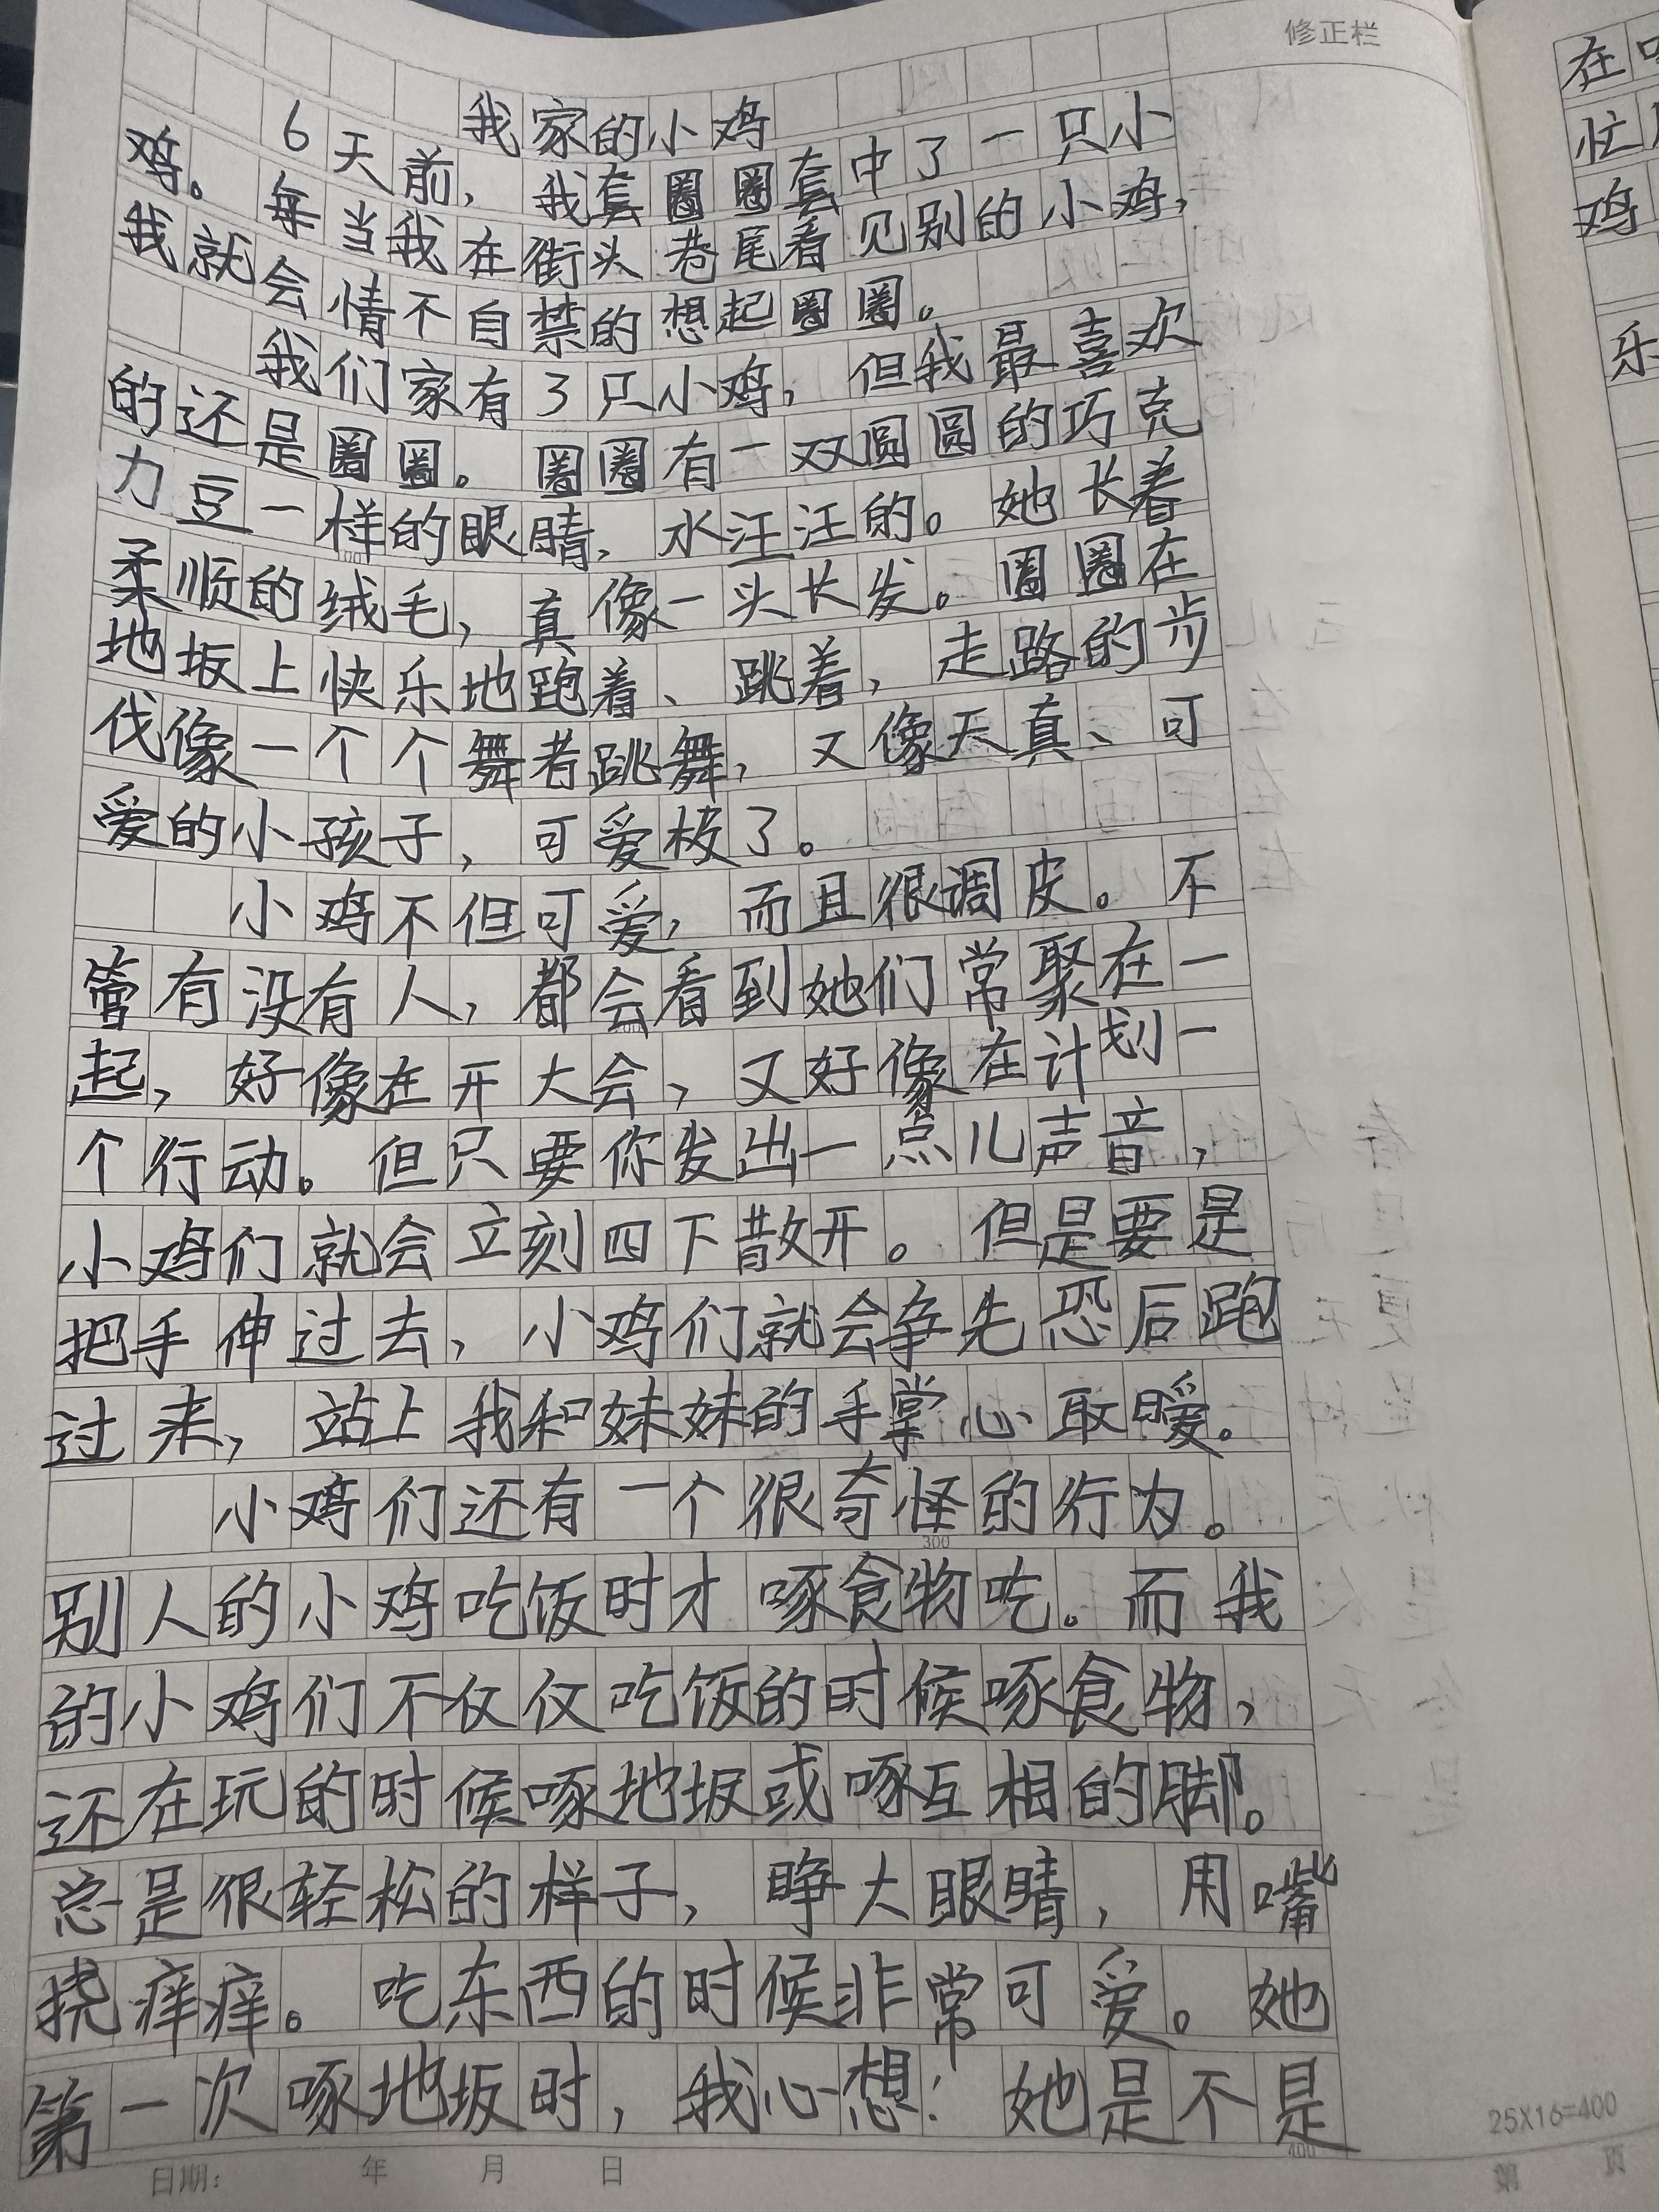 修正栏
我家的小鸡
6天前，我套圈圈套中了一只小
鸡。每当我在街头巷尾看见别的小鸡，
我就会情不自禁的想起圈圈。
我们家有了只小鸡，但我最喜欢
的还是圈圈。圈圈有一双圆圆的巧克
力豆一样的眼睛，水汪汪的。她长着
柔顺的绒毛，真像一头长发。圈圈在
地坂上快乐地跑着、跳着，走路的步
伐像一个个舞者跳舞，又像天真、可
爱的小孩子，可爱极了。
小鸡不但可爱，而且很调皮。不
管有没有人，都会看到她们常聚在一
起，好像在开大会，又好像在计划一
个行动。但只要你发出一点儿声音，
小鸡们就会立刻四下散开。但是要是
把手伸过去，小鸡们就会争先恐后跑
过来，站上我和妹妹的手掌心取暖。
小鸡们还有一个很奇怪的行为。
300
别人的小鸡吃饭时才啄食物吃。而我
的小鸡们不仅仅吃饭的时候啄食物，
还在玩的时候啄地坂或啄互相的脚。
总是很轻松的样子，睁大眼睛，用嘴
挠痒痒。吃东西的时候非常可爱。她
第一次啄地坂时，我心想：她是不是
400
25X16=400
日期： 年 月 日
第 页
在
忙
鸡
乐